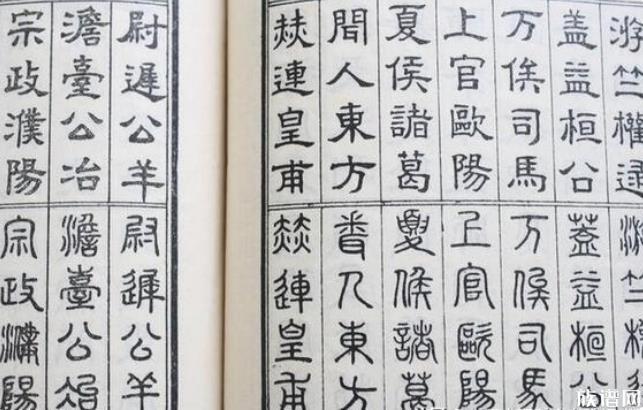 游竺權逯
蓋益桓公
万俟司馬
上官歐陽
夏侯諸葛
聞人東方
赫連皇甫
尉遲公羊
澹臺公冶
宗政濮陽
游竺權
蓋益桓公
万俟司馬
上官歐陽
夏侯諸葛
聞人東方
赫連皇甫
尉遲公羊
澹臺公冶
宗政濮陽
族谱网